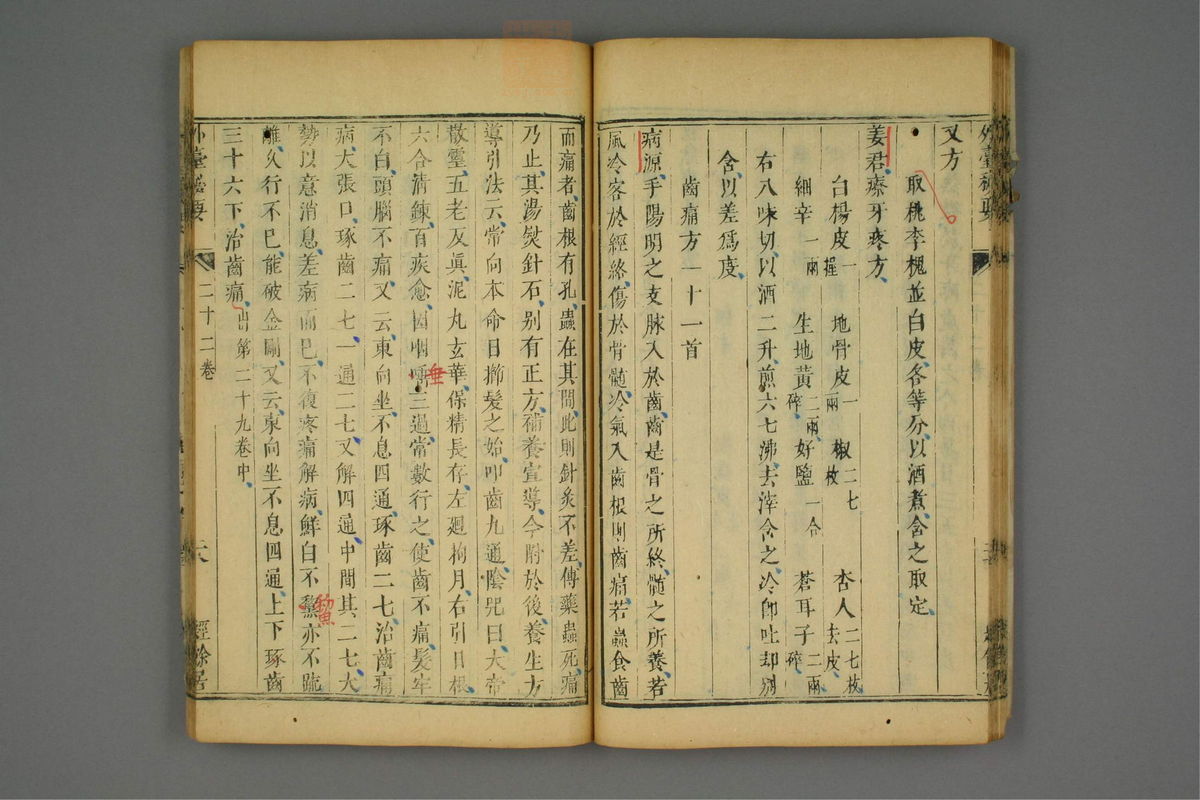 外臺秘要
又方
取桃李槐並白皮各等分以酒煮含之取定
姜君瘵牙疼方
白楊皮一握 地骨皮一兩 椒二七枚 杏人二七枚去皮
細辛一兩 生地黃二兩碎 好鹽一合 蒼耳子二兩碎
右八味切以酒二升煎六七沸去滓含之冷即吐却別
含以差爲度
齒痛方一十一首
病源手陽明之支脉入於齒齒是骨之所終髓之所養若
風冷客於經絡傷於骨髓冷氣入齒根則齒痛若蟲食齒
而痛者齒根有孔蟲在其間此則針灸不差傅藥蟲死痛
乃止其湯熨針石別有正方補養宣導今附於後養生方
導引法云常向本命日擲髮之始叩齒九通陰咒曰大帝
散靈五老反眞泥丸玄華保精長存左廻拘月右引日根
六合清鍊百疾愈因咽唾三過常數行之使齒不痛髮牢
垂
不白頭腦不痛又云東向坐不息四通琢齒二七治齒痛
病大張口琢齒二七一通二七又解四通中間其二七大
勢以意消息差病而已不復疼痛解病鮮白不黧亦不疏
離久行不已能破金剛又云東向坐不息四通上下琢齒
三十六下治齒痛出第二十九卷中
外臺秘要
二十二卷
六
經餘居